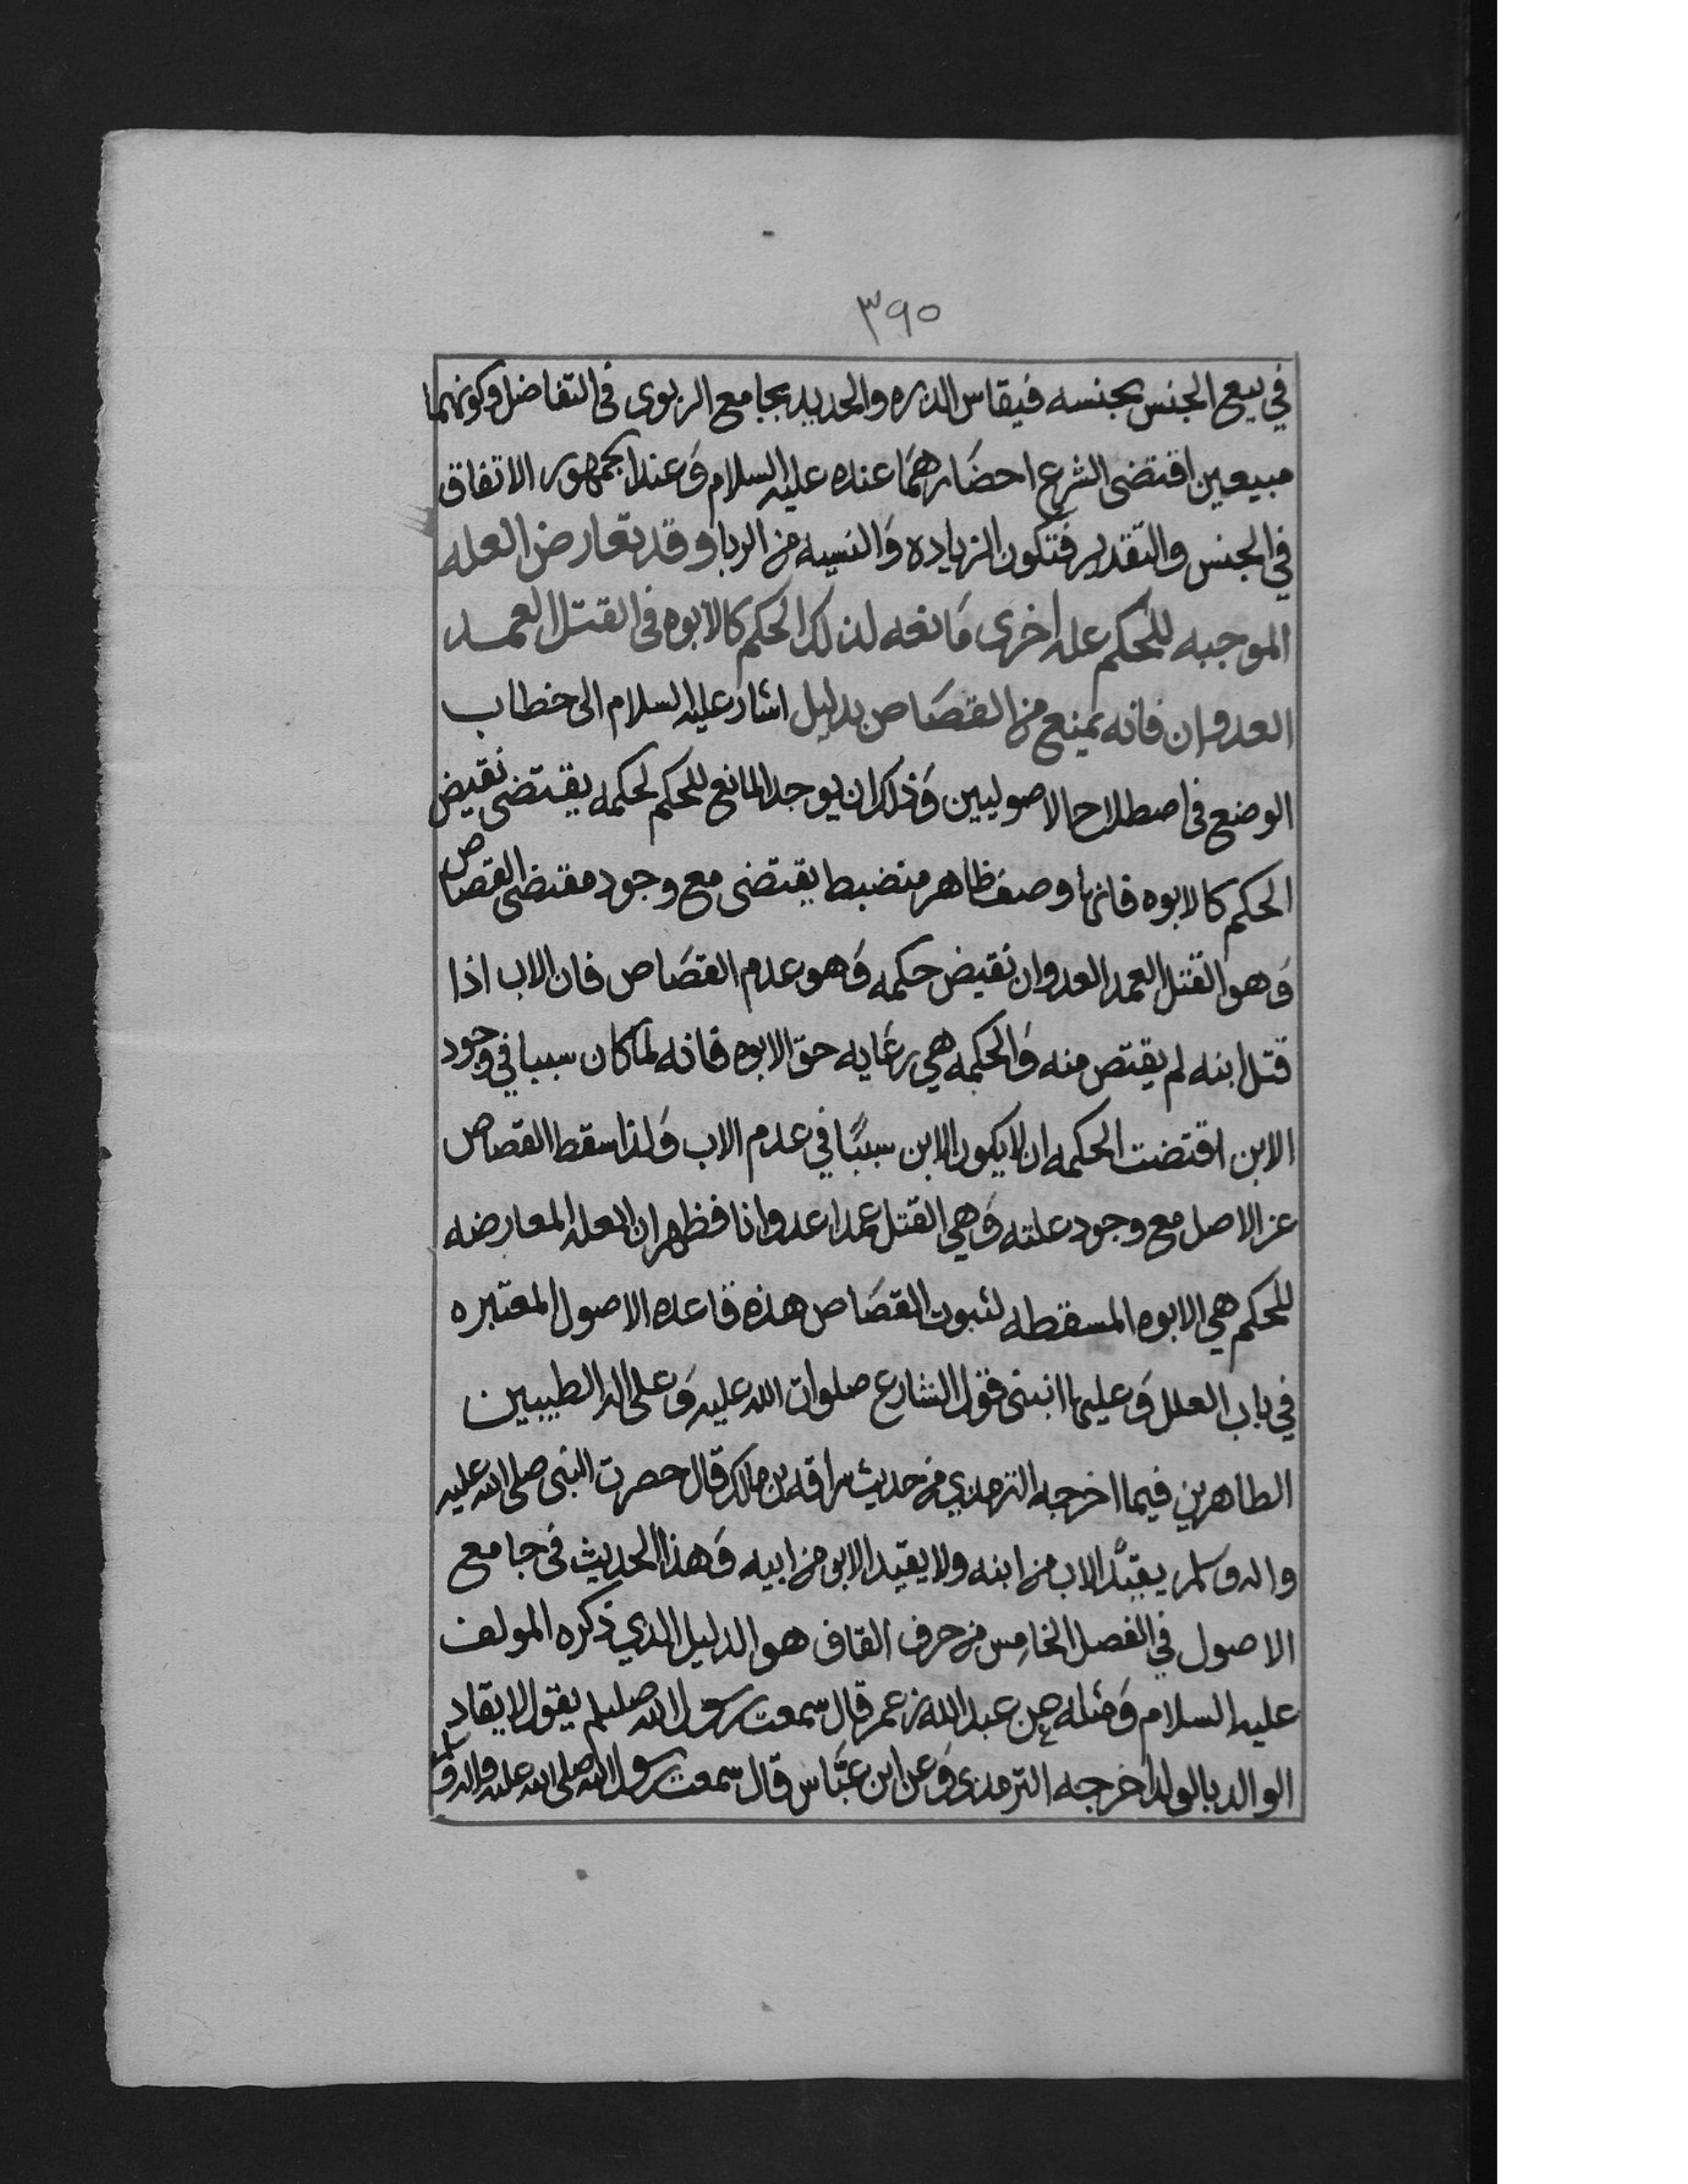 ٣٩٥
في بيع الجنس بجنسه فيقاس الذره والحديد بجامع الربوى فى التفاضل وكونهما
مبيعين اقتضى الشرع احضارهما عنده عليه السلام وَعند الجمهور الاتفاق
في الجنس والتقدير فتكون الزياده وَالنسيه من الربا وقد تعارض العله
الموجبه للحكم عله اخرى مَانعه لذلك الحكم كالابوه فى القتل العمد
العدوان فانه يمنع من القصَاص بدليل اشار عليه السلام الى خطاب
الوضع فى اصطلاح الاصوليين وَذلك ان يوجد المانع للحكم لحكمه يقتضى نقيض
الحكم كالابوه فانها وصف ظاهر منضبط يقتضى مع وجود مقتضى القصاص
وَهو القتل العمد العدوان نقيض حكمه وَهو عدم القصَاص فان الاب اذا
قتل ابنه لم يقتص منه وَالحكمه هي رعَايه حق الابوه فانه لما كان سببا في وجود
الابن اقتضت الحكمه ان لا يكون الابن سببًا في عدم الاب وَلذا سقط القصاص
عن الاصل مع وجود علته وَهي القتل عمدا عدوانا فظهر ان العله المعارضه
للحكم هي الابوه المسقطه لثبوت القصَاص هذه قاعده الاصول المعتبره
في باب العلل وَعليها انبنى فقول الشارع صلوات الله عليه وَعلى اله الطيبين
الطاهرين فيما اخرجه الترمذي من حديث سراقه بن مالك قال حضرت النبى صلى الله عليه
واله وسلم يقيد الاب من ابنه ولا يقيد الابن من ابيه وَهذا الحديث فى جامع
الاصول في الفصل الخامس من حرف القاف هو الدليل الذي ذكره المولف
عليه السلام وَمثله عن عبد الله بن عمر قال سمعت رسول الله صللم يقول لا يقاد
الوالد بالولد اخرجه الترمذى وَعن ابن عبَّاس قال سمعت رسول الله صلى الله عليه واله وسلم